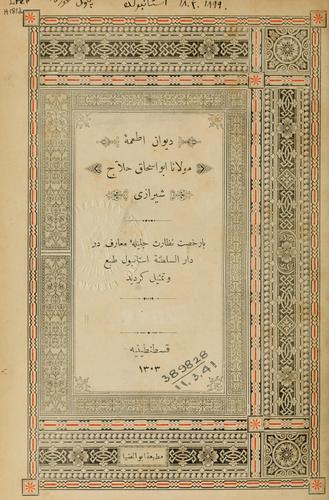 ۱۸.۲.۱۸۹۹. استانبولده
دیوان اطعمهٔ
مولانا ابواسحاق حلاج
شیرازی
بارخصت نظارت جلیلهٔ معارف در
دار السلطنهٔ استانبول طبع
و تمثیل گردید
قسطنطینیه
۱۳۰۳
389828
11.3.41
مطبعهٔ ابوالضیا